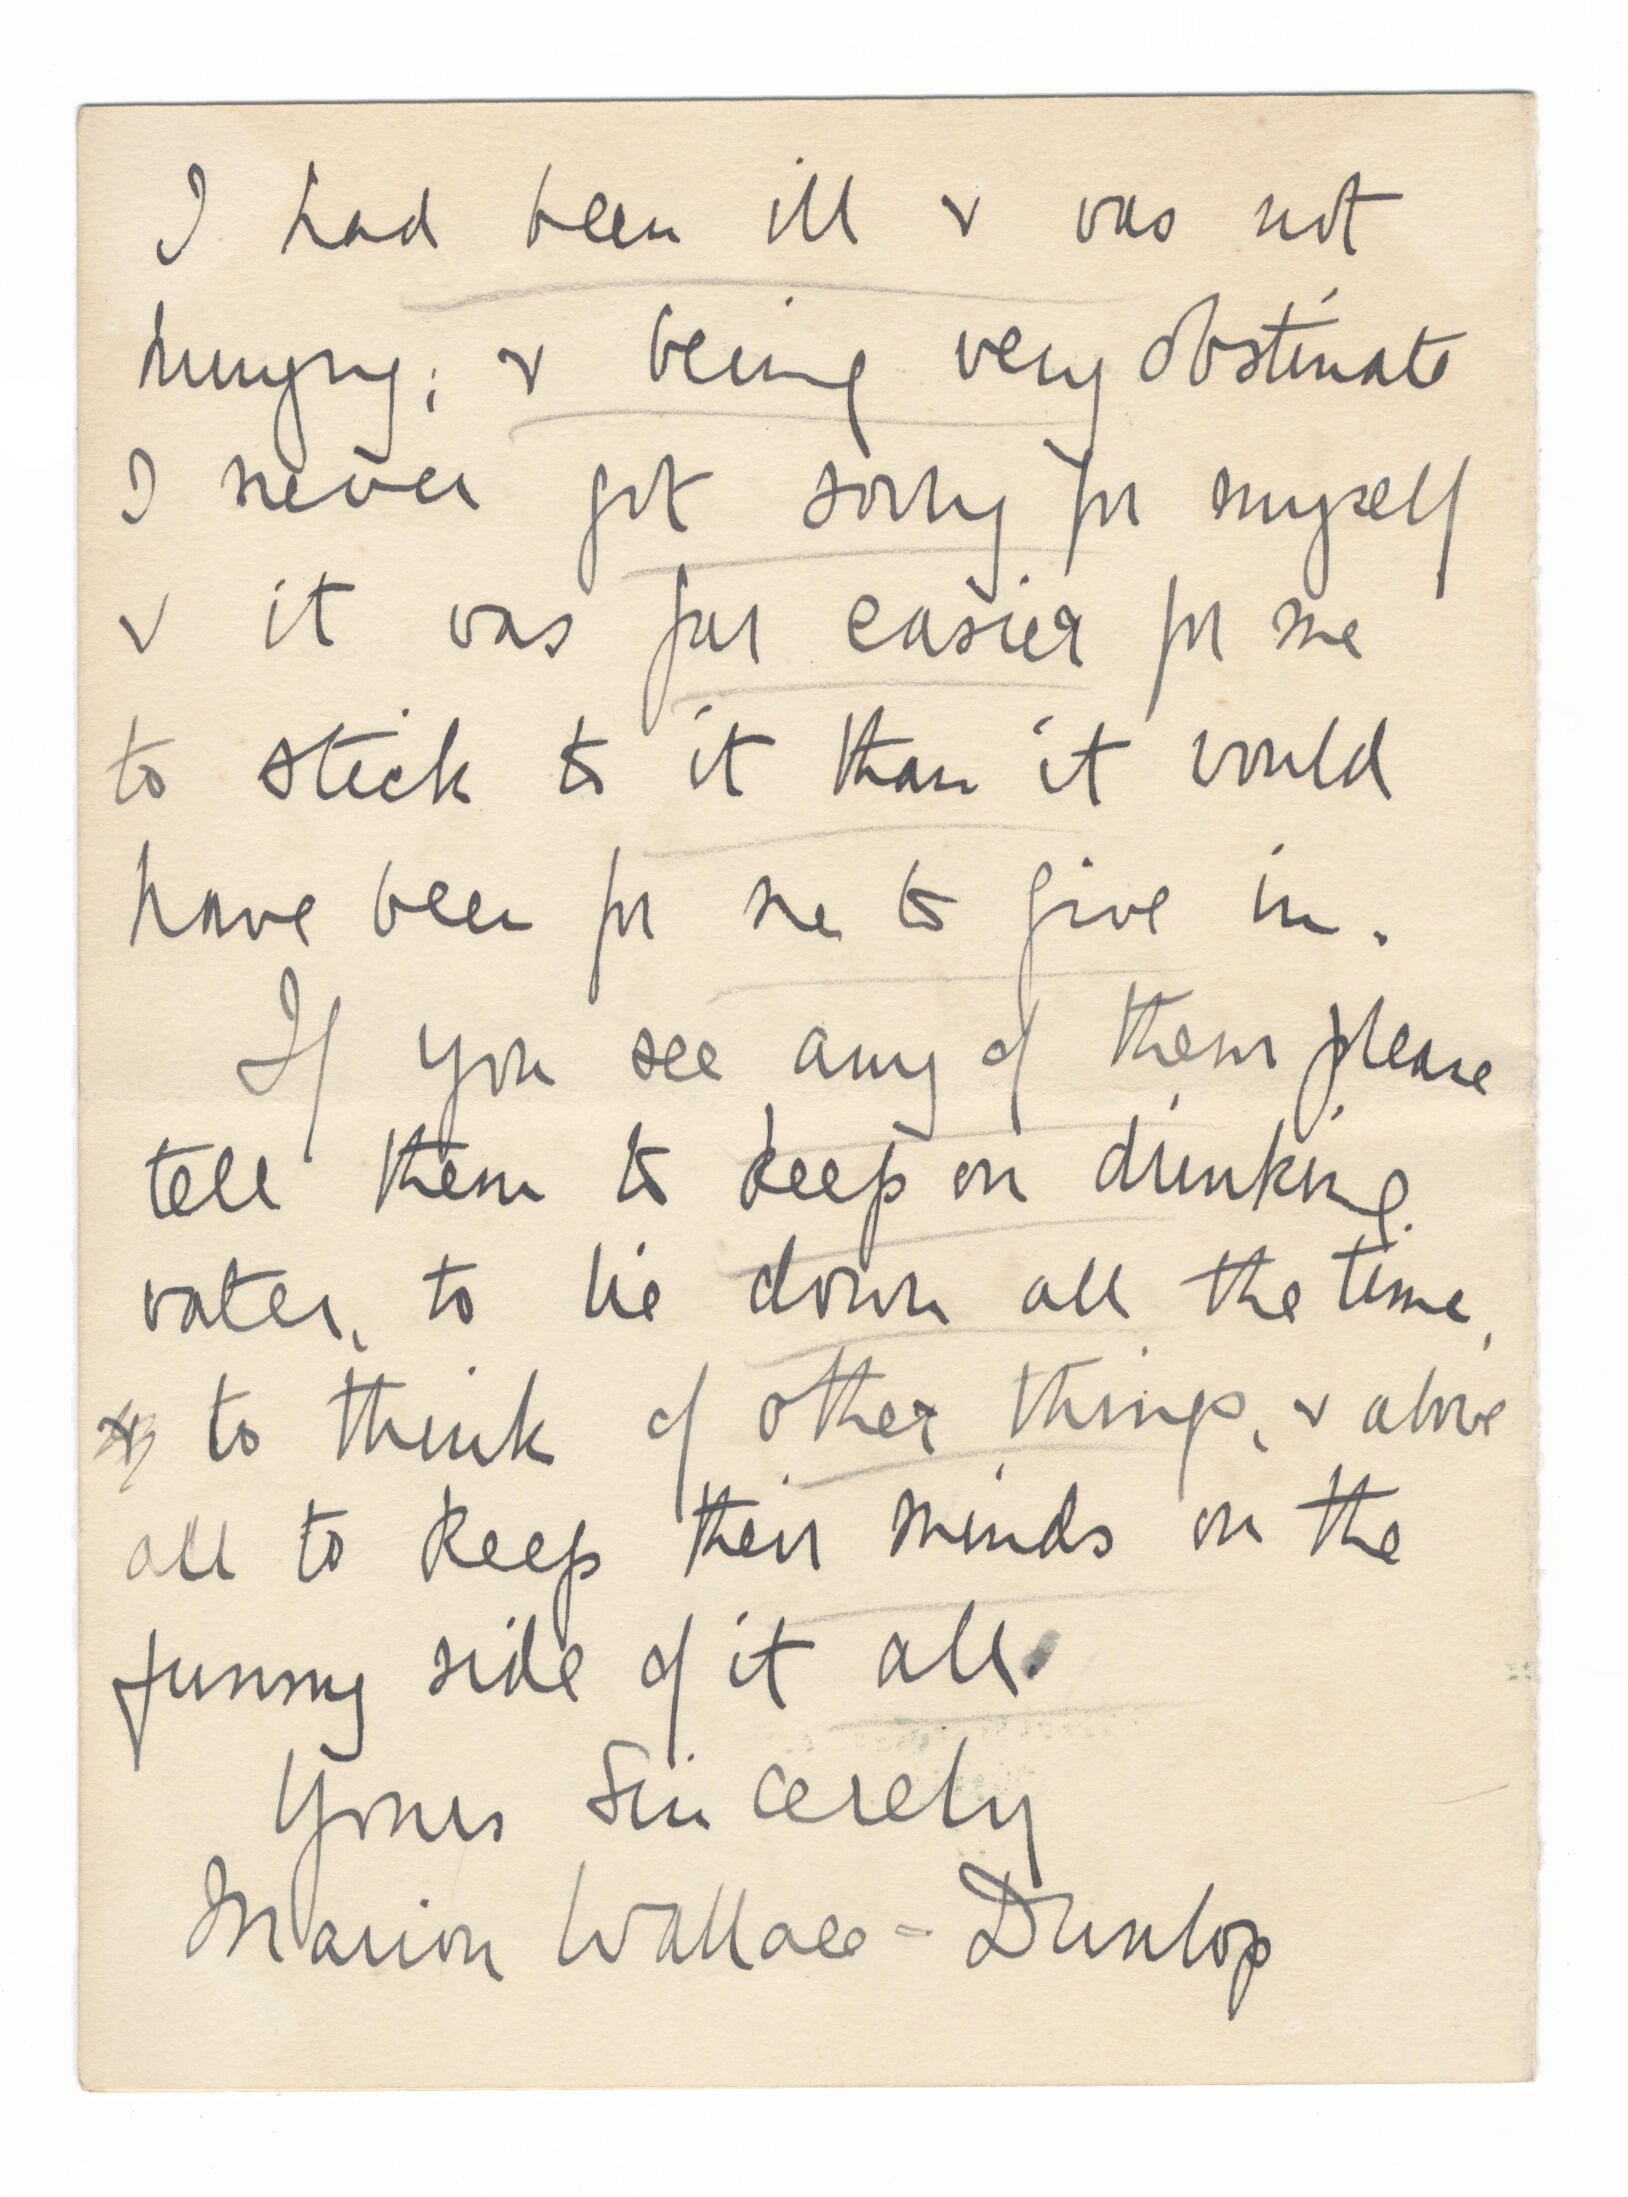 I had been ill & was not
hungry; & being very obstinate
I never got sorry for myself
& it was far easier for me
to stick to it than it would
have been for me to give in.
If you see any of them please
tell them to keep on drinking
water, to lie down all the time,
to think of other things, & above
all to keep their minds on the
funny side of it all.
Yours Sincerely
Marion Wallace-Dunlop